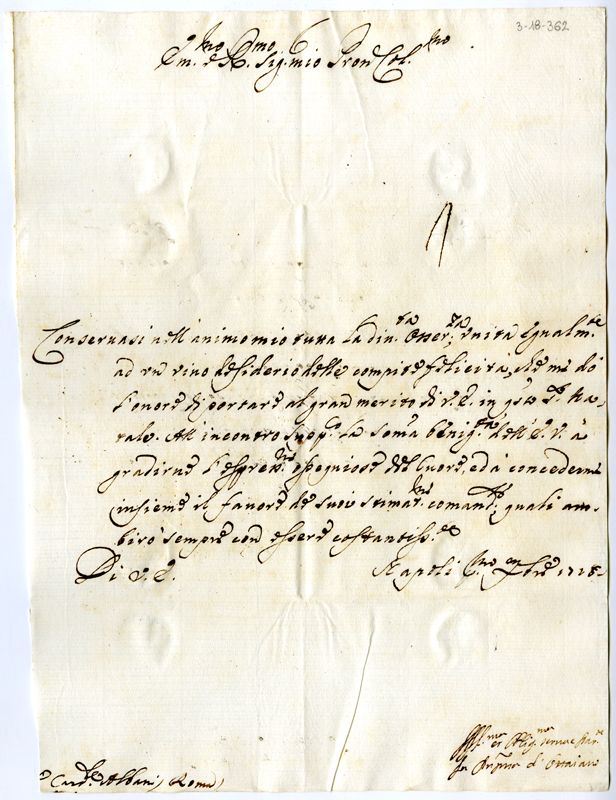 3-18-362
Em.mo e R.mo Sig. mio Pron Col.mo
Conservasi nell'animo mio tutta la din.ta Osser.za, unita egualm.te
ad un vivo desiderio delle compite felicità, che mi dò
l'onore di portare al gran merito di V. E. in q.sto S. Na-
tale. All'incontro supp.co la somã benig.tà dell'E. V. à
gradirne l'espress.ni ossequiose del Cuore, ed à concedermi
insieme il favore de suoi stimat.mi comand.ti, quali am-
birò sempre con essere costantiss.te
Di V. E. Napoli P.mo Xbre 1718
Aff.mo et Oblig.mo Ser.re
d'Ottaiano
Card.le Albani Roma